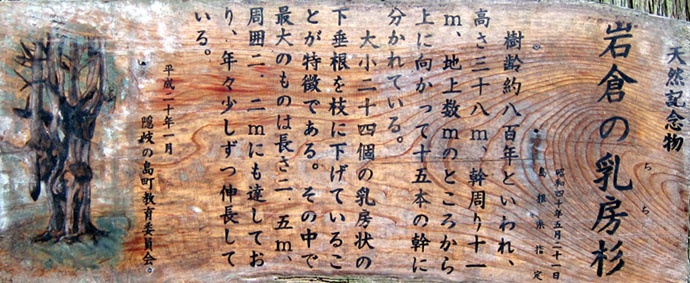 天然記念物
岩倉の乳房杉
ちち
昭和四十年五月二十一日
島根県指定
樹齢約八百年といわれ、
高さ三十八m、幹周り十一
m、地上数mのところから
上に向かって十五本の幹に
分かれている。
大小二十四個の乳房状の
下垂根を枝に下げているこ
とが特徴である。その中で
最大のものは長さ二.五m、
周囲二、二mにも達してお
り、年々少しずつ伸長して
いる。
平成二十年一月
隠岐の島町教育委員会。